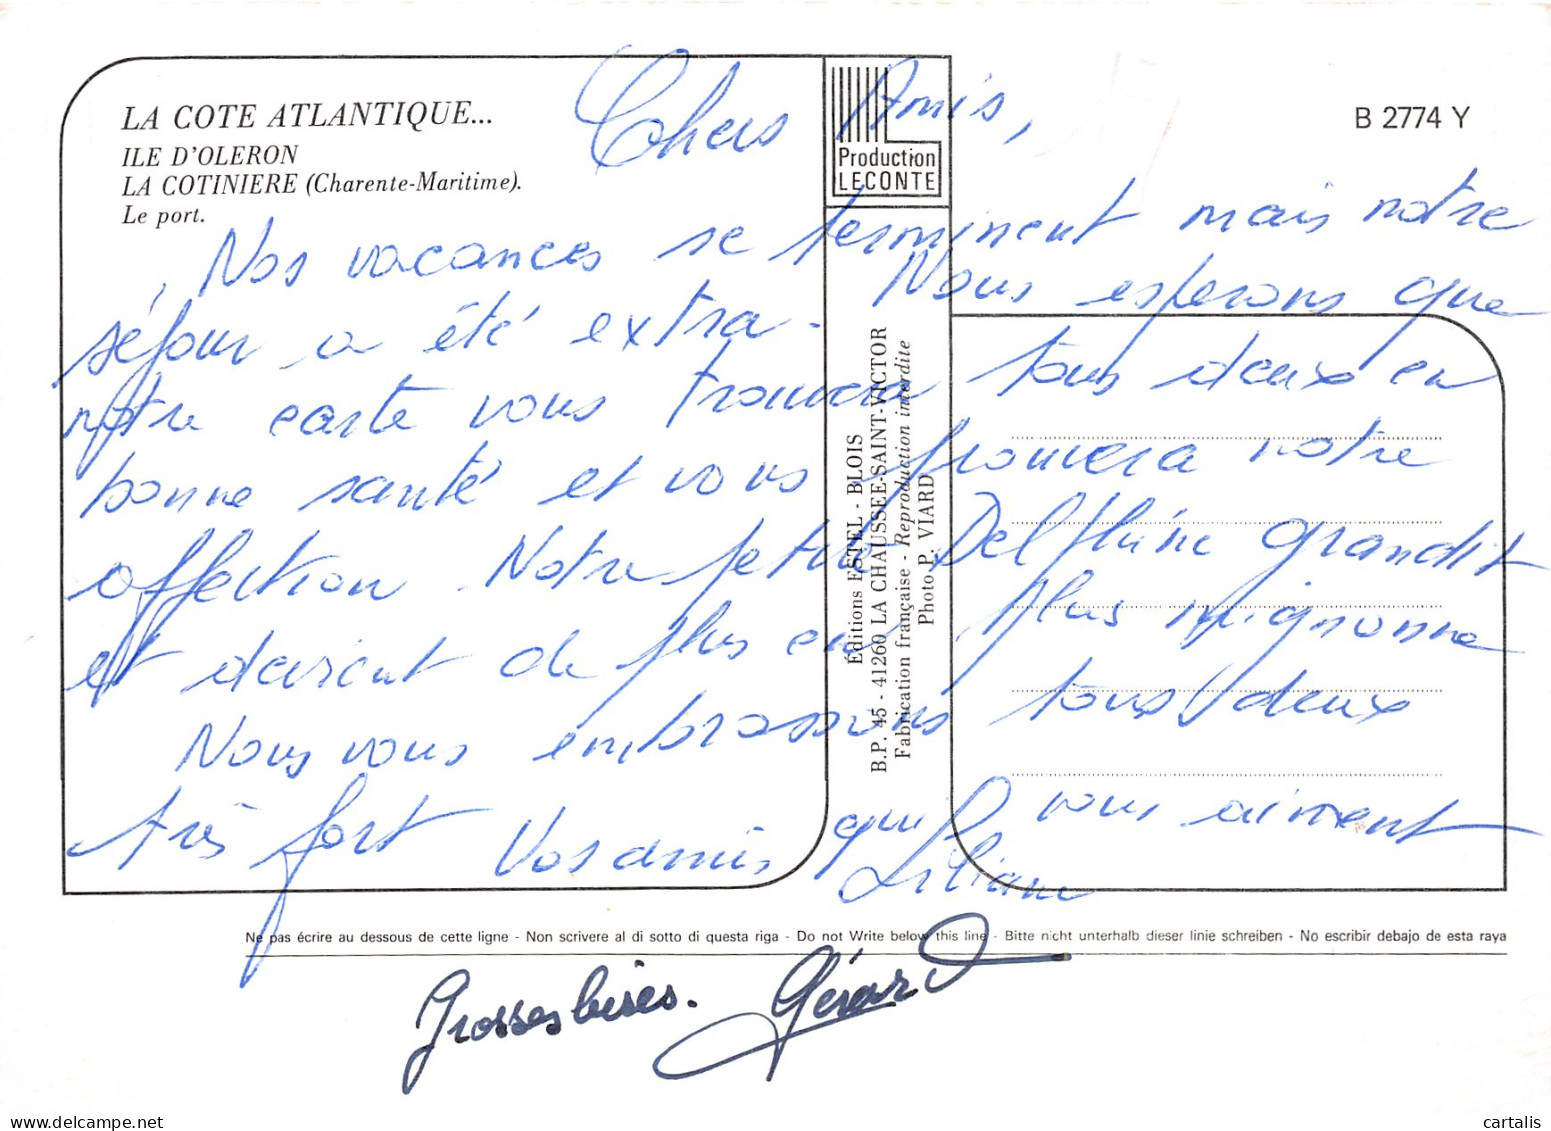 LA COTE ATLANTIQUE...
ILE D'OLERON
LA COTINIERE (Charente-Maritime).
Le port.
Production
LECONTE
B 2774 Y
Chers Amis,
Nos vacances se terminent mais notre
séjour a été extra. Nous esperons que
notre carte vous trouvera tous deux en
bonne santé et vous prouvera notre
affection. Notre petite Delphine grandit
et devient de plus en plus mignonne
Nous vous embrassons tous deux
très fort Vos amis qui vous aiment
Liliane
Grosses bises. Gérard
Éditions ESTEL - BLOIS
B.P. 45 - 41260 LA CHAUSSEE-SAINT-VICTOR
Fabrication française - Reproduction interdite
Photo P. VIARD
Ne pas écrire au dessous de cette ligne - Non scrivere al di sotto di questa riga - Do not Write below this line - Bitte nicht unterhalb dieser linie schreiben - No escribir debajo de esta raya
cartalis